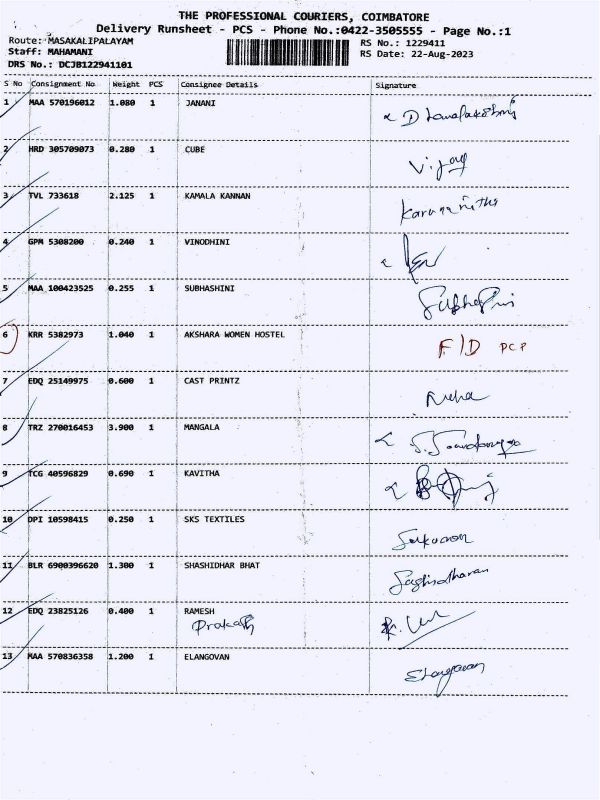 THE PROFESSIONAL COURIERS, COIMBATORE
Delivery Runsheet - PCS - Phone No.:0422-3505555 - Page No.:1
Route: MASAKALIPALAYAM
RS No.: 1229411
Staff: MAHAMANI
RS Date: 22-Aug-2023
DRS No.: DCJB122941101
S No Consignment No Weight PCS Consignee Details Signature
1 MAA 570196012 1.080 1 JANANI
2 HRD 305709073 0.280 1 CUBE Vijay
3 TVL 733618 2.125 1 KAMALA KANNAN
4 GPM 5308200 0.240 1 VINODHINI
5 MAA 100423525 0.255 1 SUBHASHINI
6 KRR 5382973 1.040 1 AKSHARA WOMEN HOSTEL F/D PCP
7 EDQ 25149975 0.600 1 CAST PRINTZ Neha
8 TRZ 270016453 3.900 1 MANGALA
9 TCG 40596829 0.690 1 KAVITHA
10 DPI 10598415 0.250 1 SKS TEXTILES
11 BLR 6900396620 1.300 1 SHASHIDHAR BHAT
12 EDQ 23825126 0.400 1 RAMESH
Prakash
13 MAA 570836358 1.200 1 ELANGOVAN Elangovan